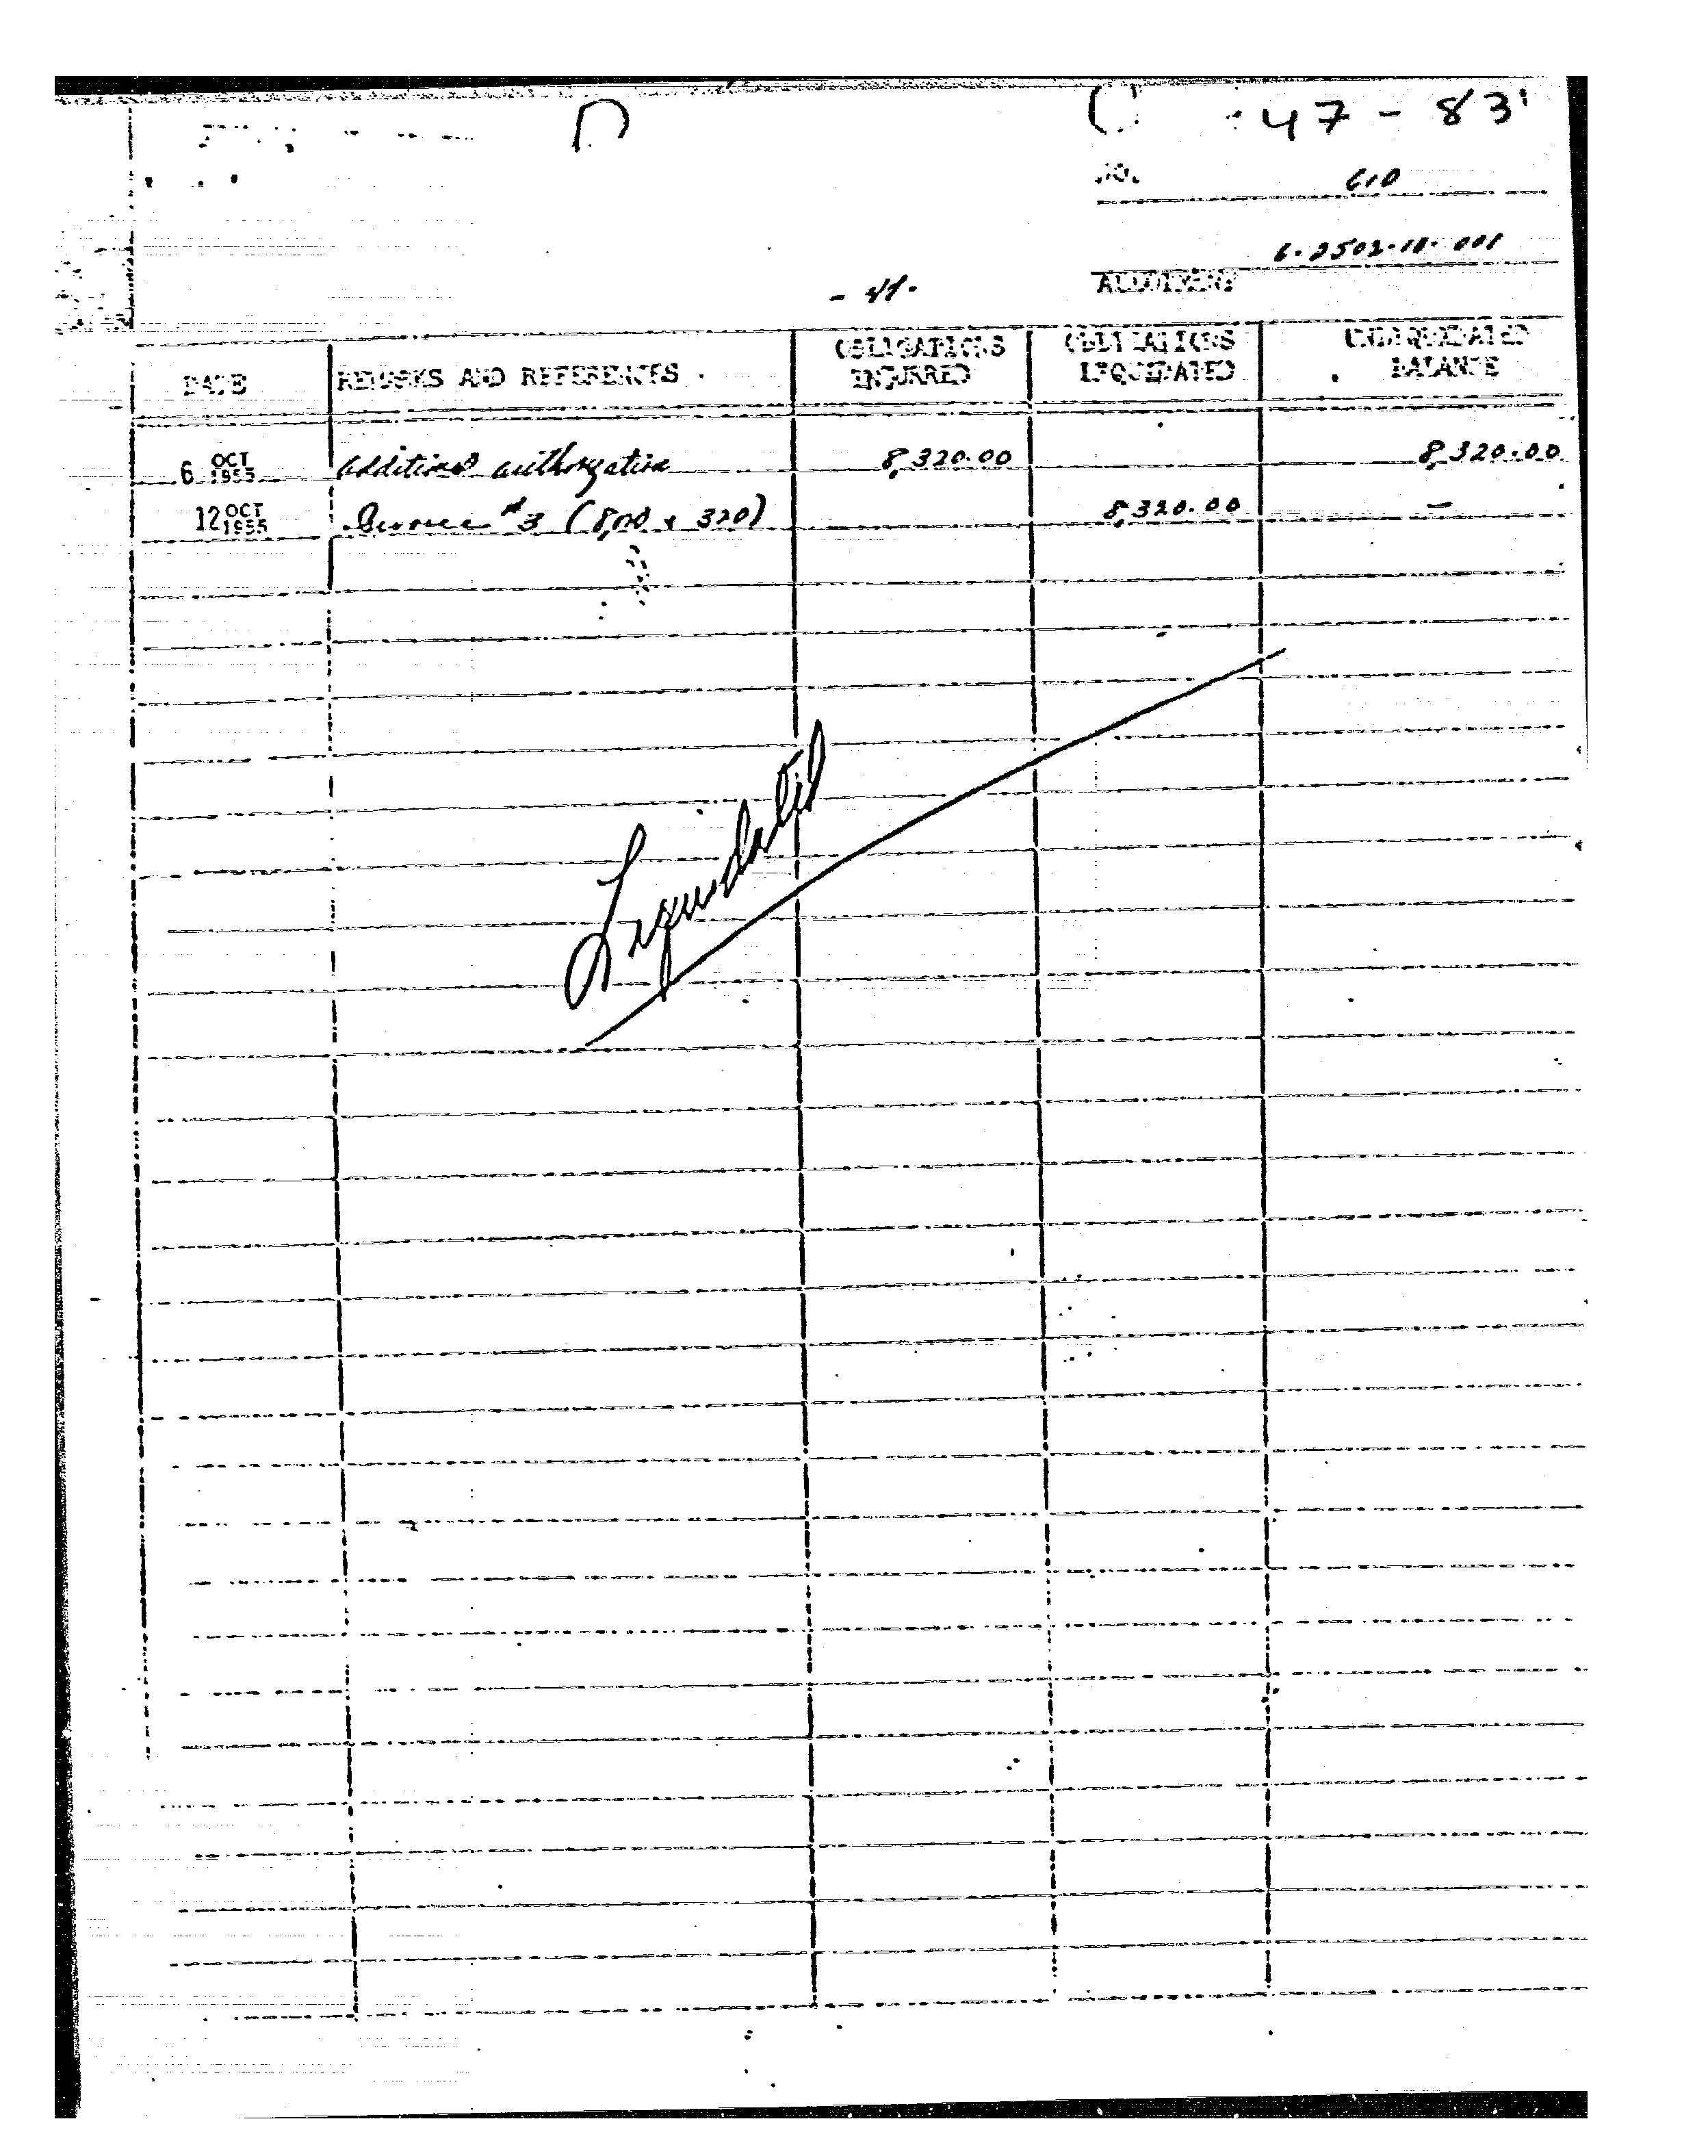 47-83
NO. 610
6-2502-10-001
ALLOTMENT
- 41 -
DATE REMARKS AND REFERENCES OBLIGATIONS INCURRED OBLIGATIONS LIQUIDATED UNLIQUIDATED BALANCE
6 OCT 1955 Additional authorization 8,320.00 8,320.00
12 OCT 1955 Invoice #3 (8,000 + 320) 8,320.00 —
Liquidated